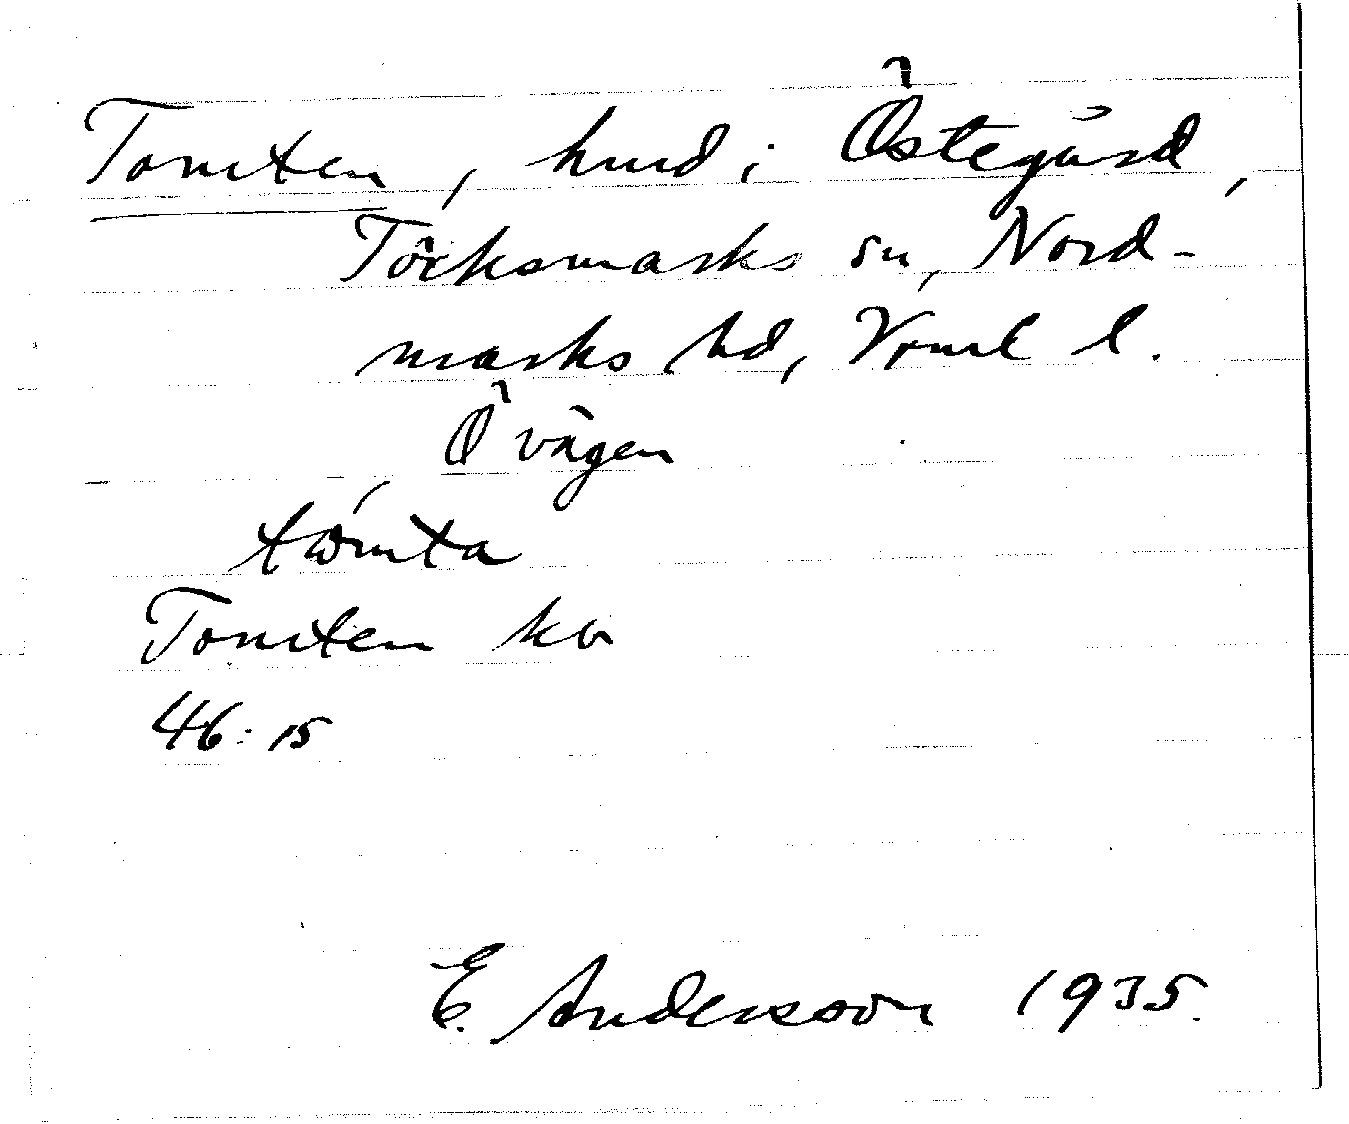 Tomten, hmd i Östegård,
Töcksmarks sn, Nord-
marks hd, Vrml l.
Ö vägen
tômta
Tomten ka
46:15
E. Andersson 1935.